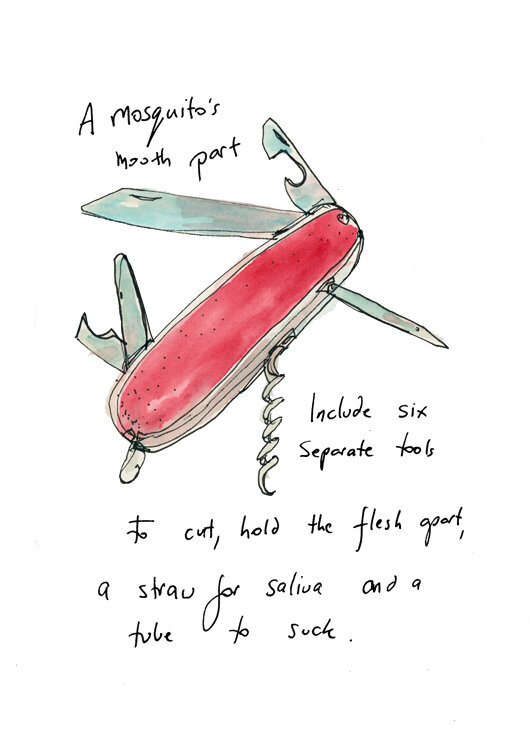 A mosquito's
mouth part
Include six
Separate tools
To cut, hold the flesh apart,
a straw for saliva and a
tube to suck.